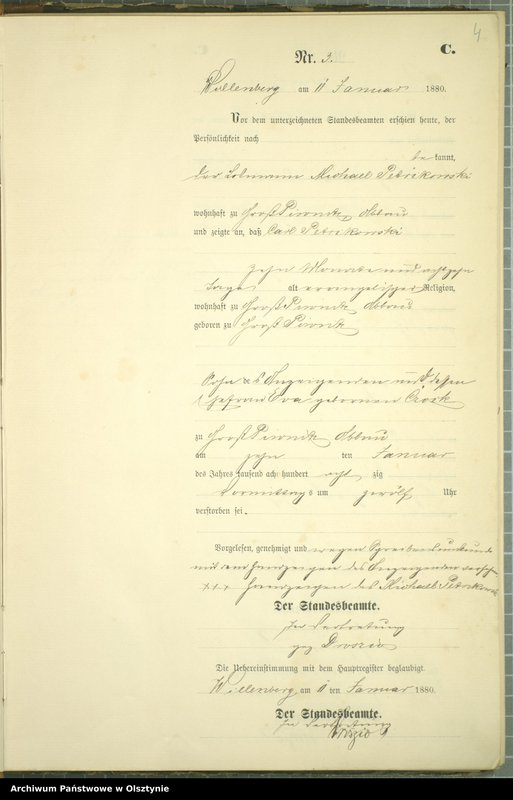 4
C.
Nr. 3.
Willenberg am 11 Januar 1880.
Vor dem unterzeichneten Standesbeamten erschien heute, der
Persönlichkeit nach
be kannt,
der Michael Petrikowski
wohnhaft zu Groß Piwnitz Abbau
und zeigte an, daß Carl Petrikowski
zehn Monate und achtzehn
Tage alt evangelischer Religion,
wohnhaft zu Groß Piwnitz Abbau
geboren zu Groß Piwnitz
Sohn des Anzeigenden und dessen
Ehefrau Eva gebornen
zu Groß Piwnitz Abbau
am zehn ten Januar
des Jahres tausend acht hundert acht zig
Vormittags um zwölf Uhr
verstorben sei.
Vorgelesen, genehmigt und wegen Schreibensunkunde
mit Handzeichen des Anzeigenden versehen
+++ Handzeichen des Michael Petrikowski
Der Standesbeamte.
In Vertretung
gez
Die Uebereinstimmung mit dem Hauptregister beglaubigt.
Willenberg am 11 ten Januar 1880.
Der Standesbeamte.
In Vertretung
Archiwum Państwowe w Olsztynie